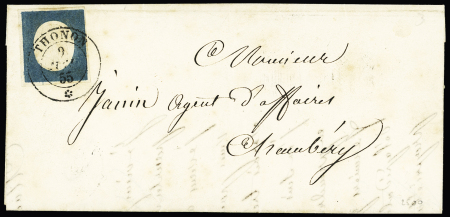 THONON
9
55
Monsieur
Janin Agent d'affaires
Chambéry